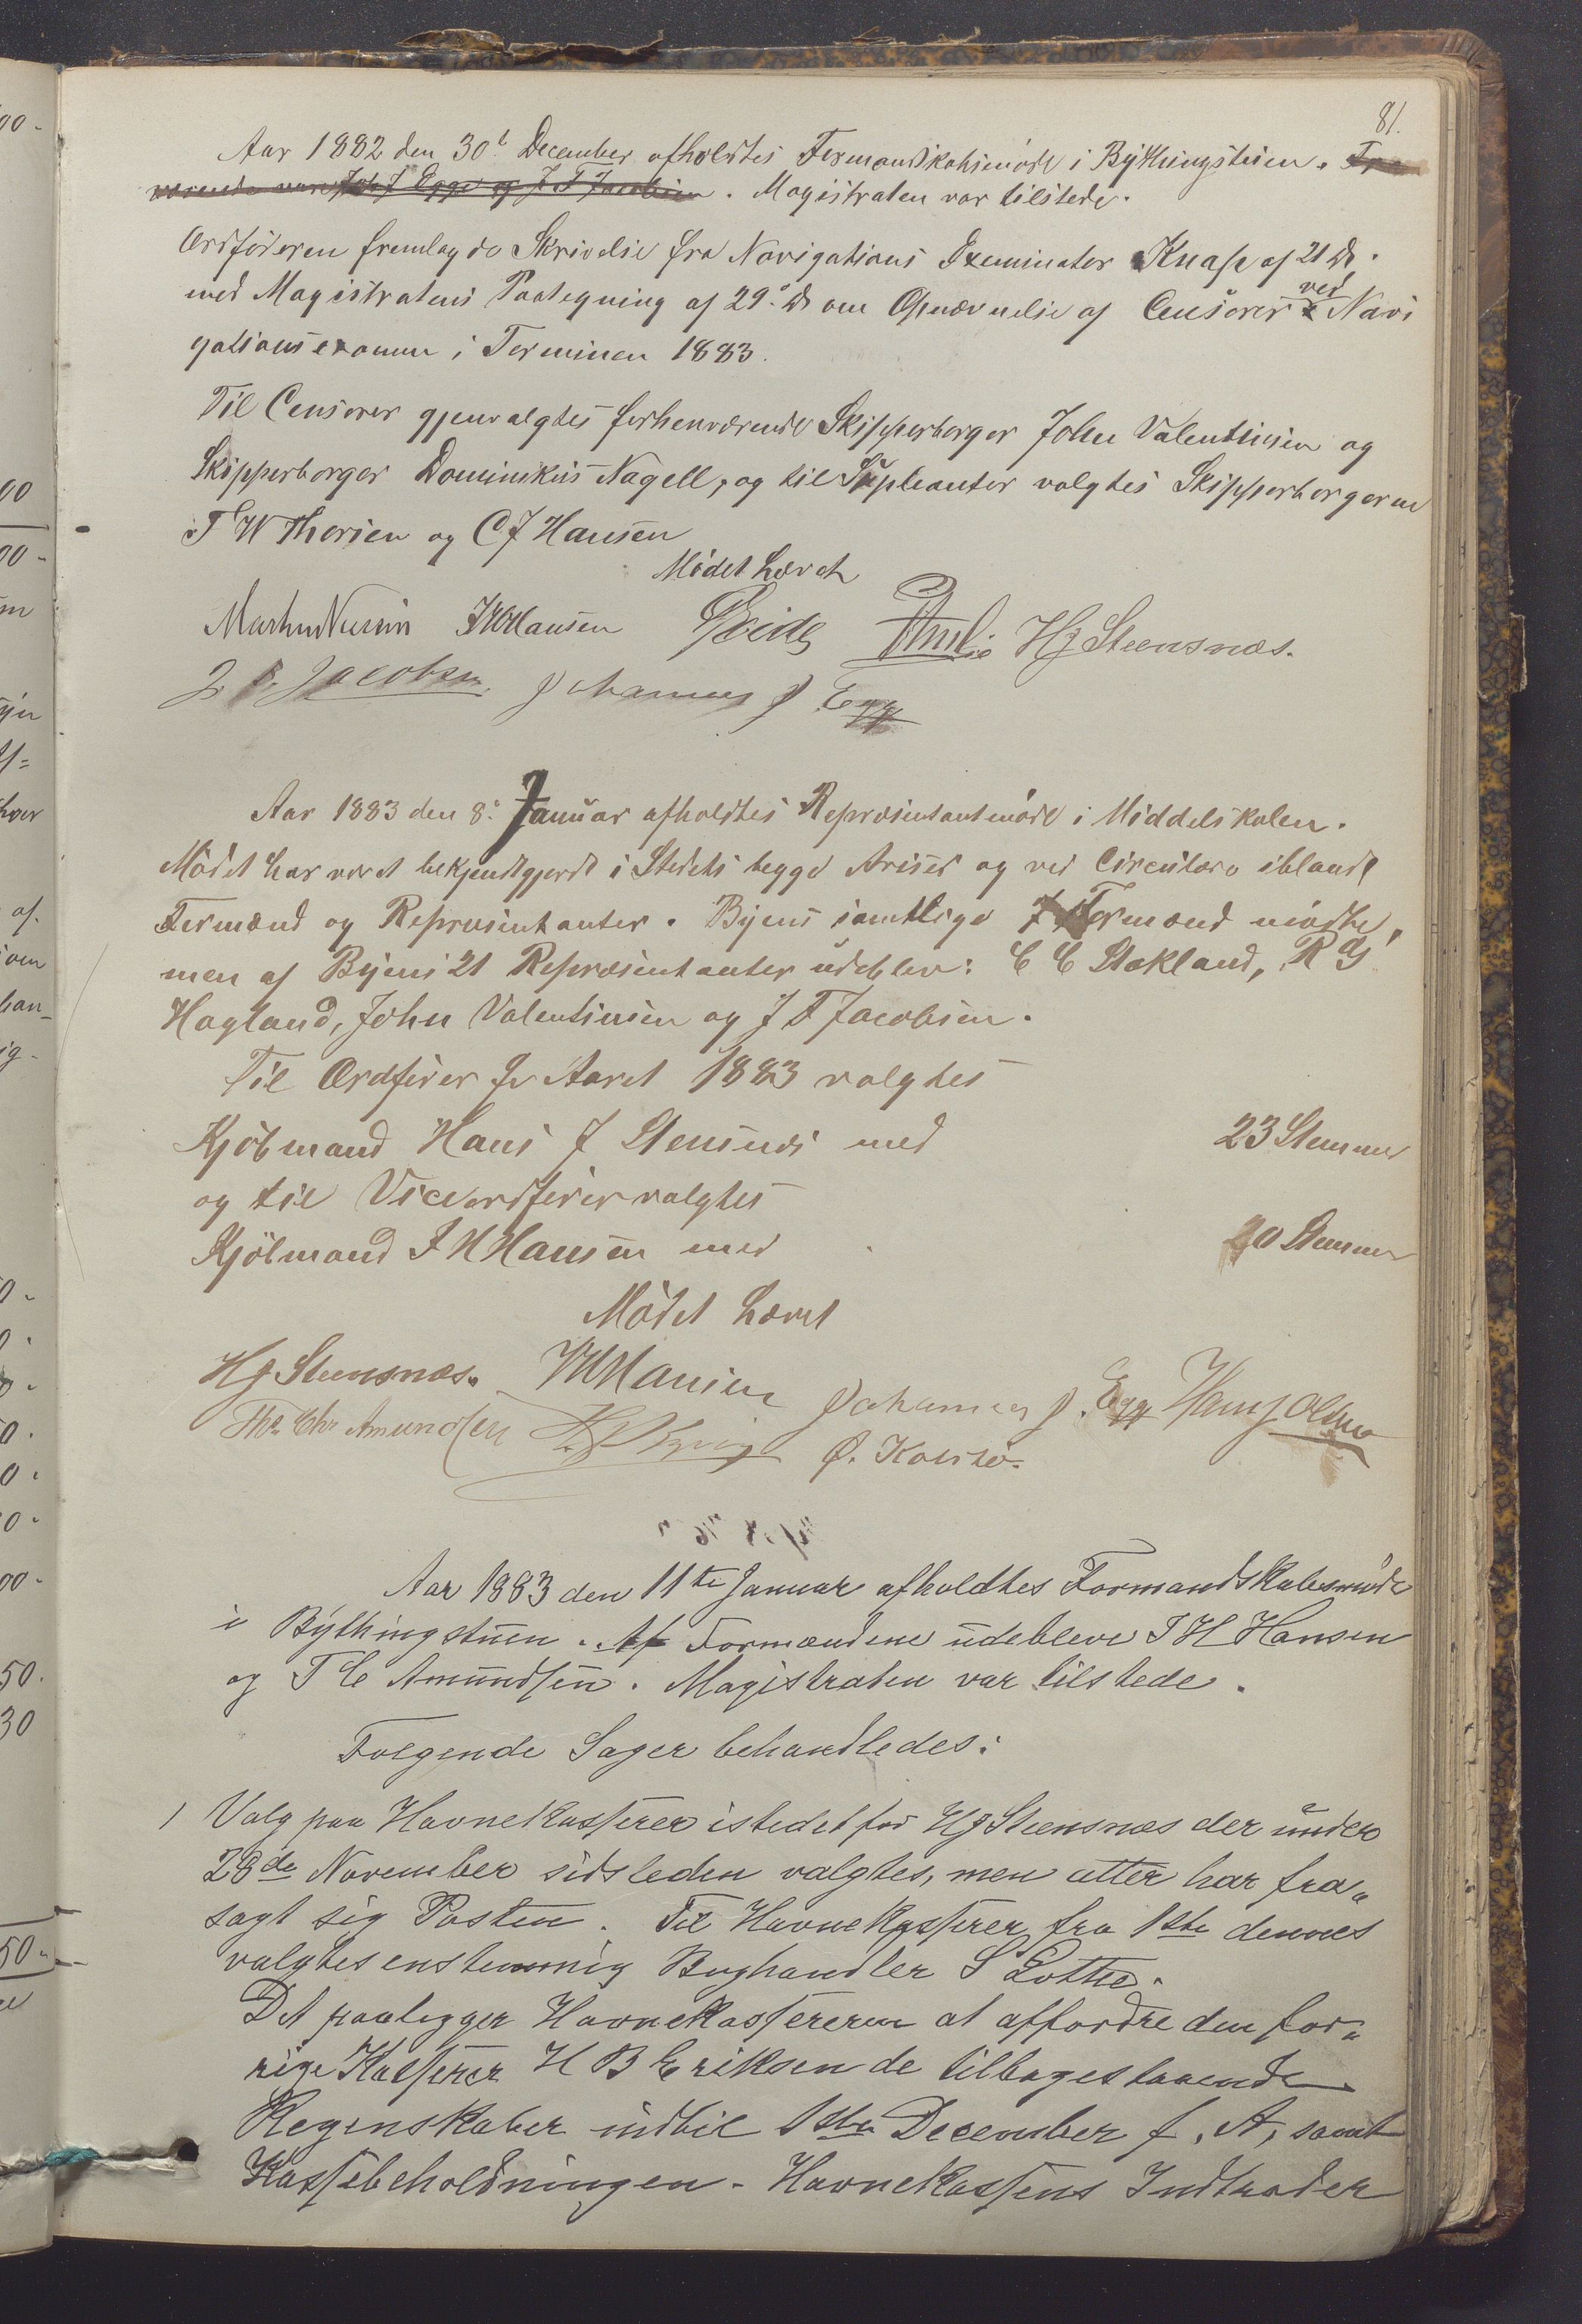 81.
Aar 1882 den 30t December afholdtes Formandskabsmøde i Bythingstuen. Fra
værende vare Joh J Egge og J F Jacobsen. Magistraten var tilstede.
Ordføreren fremlagde Skrivelse fra Navigations Examinator Knap af 21 Ds.
med Magistratens Paategning af 29. Ds om Opnævnelse af Censorer ved Navi
gationsexamen i Terminen 1883.
Til Censorer gjenvalgtes forhenværende Skipperborger John Valentinsen og
Skipperborger Dominikus Nagell, og til Supleanter valgtes Skipperborgerne
T W Thorsen og C J Hansen
Mødet hævet
JHHansen HJ Steensnæs.
J. F. Jacobsen. Johannes J Egge
Aar 1883 den 8. Januar afholdtes Repræsentantmøde i Middelskolen.
Mødet har været bekjendtgjordt i Stedets begge Aviser og ved Circulære iblandt
Formænd og Repræsentanter. Byens samtlige 7 Formænd mødte,
men af Byens 21 Repræsentanter udeblev: C C Stakland, R G
Hagland, John Valentinsen og J F Jacobsen.
Til Ordfører for Aaret 1883 valgtes
Kjøbmand Hans J Stensnæs med 23 Stemmer
og til Viceordfører valgtes
Kjøbmand J H Hansen med 20 Stemmer
Mødet hævet
HJ Steensnæs. JHHansen Johannes J. Egge Hans J Olsen
Tho. Chr Amundsen Ø. Kolstø.
Aar 1883 den 11te Januar afholdtes Formandskabsmøde
i Bythingstuen. Af Formændene udebleve J H Hansen
og T C Amundsen. Magistraten var tilstede.
Følgende Sager behandledes:
1 Valg paa Havnekasserer istedetfor HJ Steensnæs der under
28de November sidstleden valgtes, men atter har fra„
sagt sig Posten. Til Havnekasserer fra 1ste dennes
valgtes enstemmig Boghandler S Lothe.
Det paaligger Havnekassereren at affordre den for„
rige Kasserer H B Eriksen de tilbagestaaende
Regnskaber indtil 1ste December f. A, samt
Kassebeholdningen. Havnekassens Indtræder